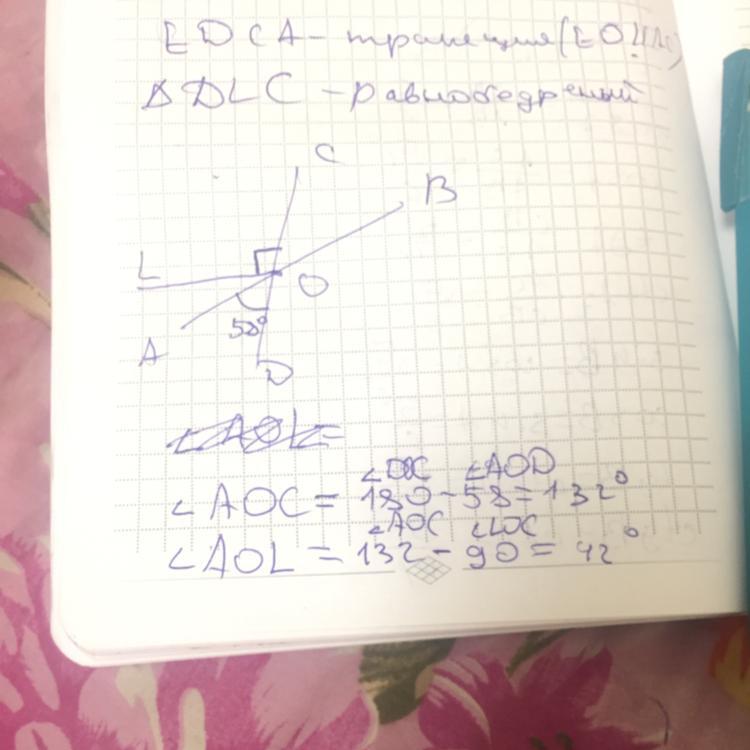 EDCA - трапеция (EO||AC)
Δ DLC - равнобедренный
C
B
L
O
58°
A
D
∠AOL =
∠DOC ∠AOD
∠AOC = 180 - 58 = 132°
∠AOC ∠LOC
∠AOL = 132 - 90 = 42°